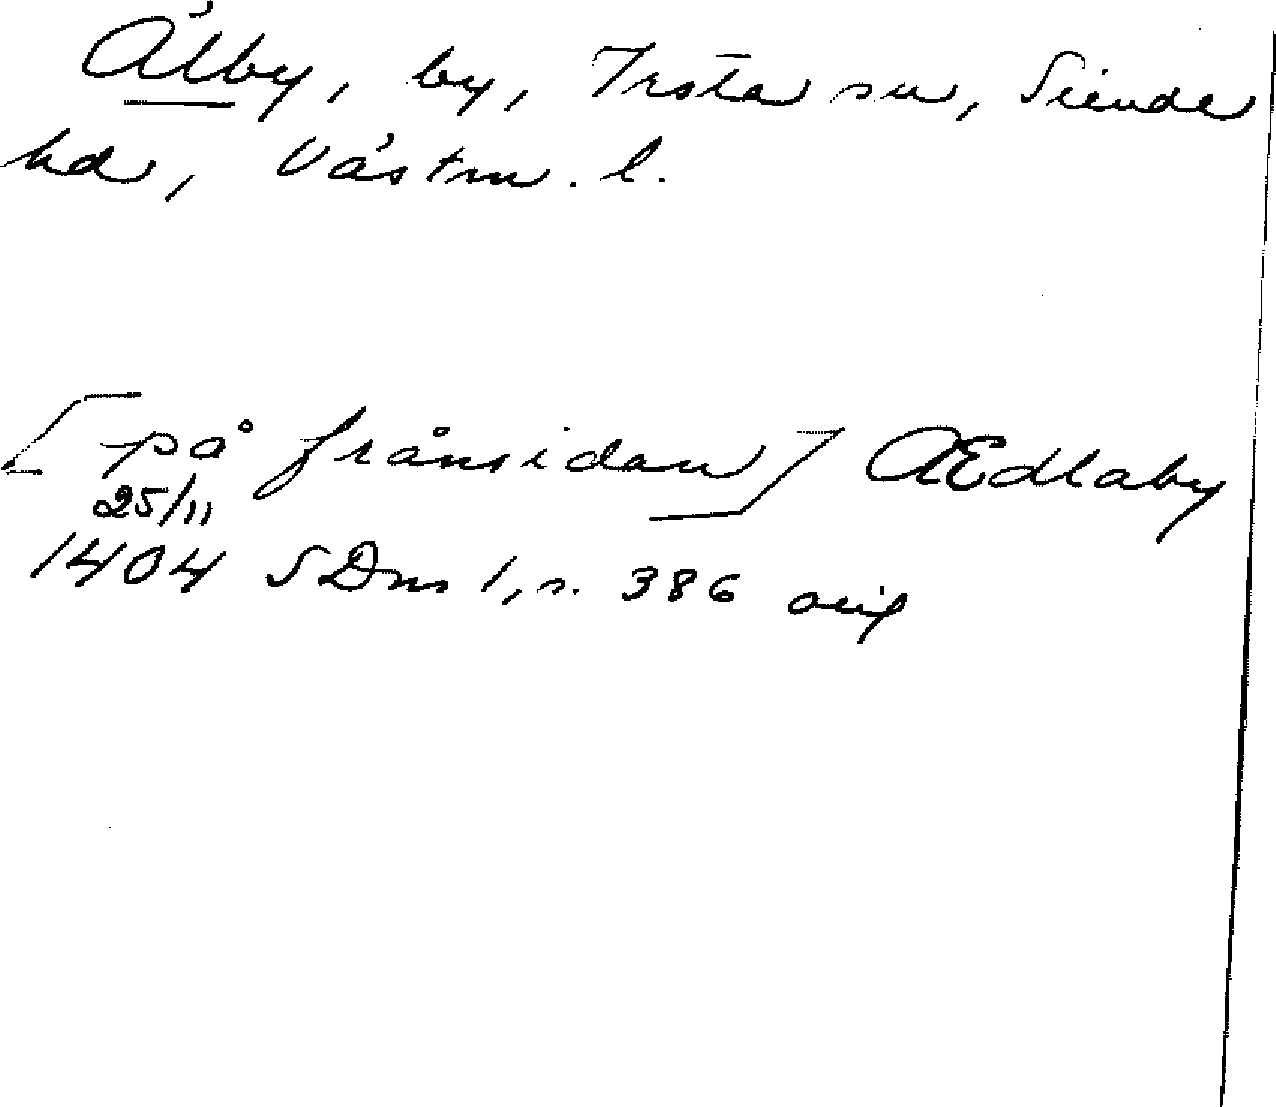 Älby, by, Irsta sn, Siende
hd, Västm. l.
[på frånsidan] AEdlaby
25/11
1404 SDns 1, s. 386 orig